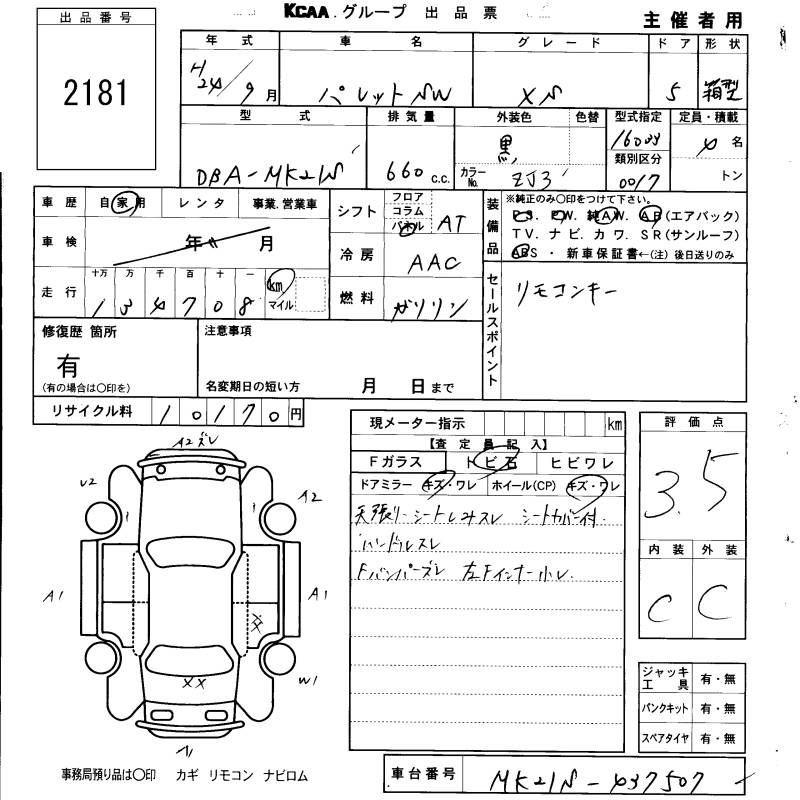 KCAA グループ 出品票
主催者用
出品番号
2181
年式 車名 グレード ドア 形状
H24/9月 パレットSW XS 5 箱型
型式 排気量 外装色 色替 型式指定 定員・積載
DBA-MK21S 660 c.c. 黒 カラーNo. ZJ3 16004 類別区分 0017 4名 トン
車歴 自家用 レンタ 事業.営業車
車検 年 月
走行 十万 万 千 百 十 一 km マイル
1 3 4 7 0 8
シフト フロア コラム パネル AT
冷房 AAC
燃料 ガソリン
装備品 ※純正のみ○印をつけて下さい。
P.S. P.W. 純A.W. A.B(エアバック)
T.V. ナビ. カワ. S.R(サンルーフ)
ABS・新車保証書←(注)後日送りのみ
セールスポイント
リモコンキー
修復歴 箇所
有
(有の場合は○印を)
注意事項
名変期日の短い方 月 日まで
リサイクル料 10170円
現メーター指示 km
【査定員記入】
Fガラス トビ石 ヒビワレ
ドアミラー キズ・ワレ ホイール(CP) キズ・ワレ
天張リーシートしみスレ シートカバー付.
ハンドルスレ
Fバンパーズレ 左Fインナー小レ.
評価点
3.5
内装 外装
C C
A2 ズレ
U2
A2
A1
A1
XX
W1
A1
ジャッキ工具 有・無
パンクキット 有・無
スペアタイヤ 有・無
事務局預り品は○印 カギ リモコン ナビロム
車台番号 MK21S-437507